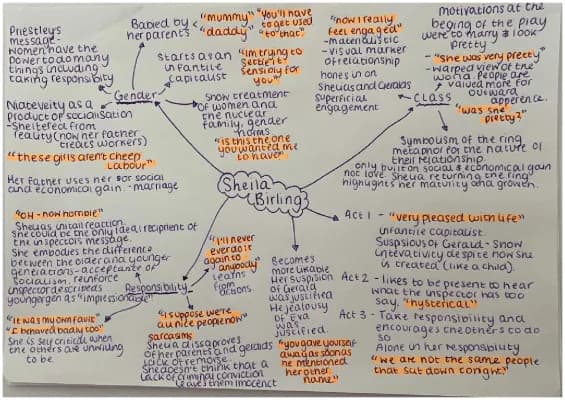 Priestley's
message-
women have the
power to do many
things including
taking responsibity
Babied by
her parents
"mummy"
"daddy"
"You'll have
to get used
to that"
Starts as an
infantile
capitalist
"Im trying to
settle it
sensibly for
you"
Gender
Niabevity as a
product of socialisation
-Sheltered from
reality (how her father
treats workers)
"these girls aren't cheep
labour"
Her Father uses her for social
and economical gain. - marriage
Show treatment
of women and
the nuclear
family, gender
norms
"is this the one
you wanted me
to have"
"now I really
feel engaged"
- materialistic
- visual marker
of relationship
hones in on
Sheilas and Geralds
superficial
engagement
motivations at the
begining of the play
were to marry & look
pretty
"She was very pretty"
- warped view of the
world. People are
valued more for
outward
apperence.
CLASS
"was she
pretty?"
Symbolism of the ring
metaphor for the nature of
their relationship.
only built on social & economical gain
not love. Sheila returning the ring
highlights her maturity and growth.
Sheila
Birling
"OH - how horrible"
Sheilas initail reaction.
She could be the only ideal recipient of
the inspectors message.
She embodies the difference
between the older and younger
generations - acceptance of
socialism. reinforce
inspector describes
younger gen as "impressionable"
Responsibility
"I'll never
ever do it
again to
anybody"
Learns
from
actions.
"It was my own fault"
"I behaved badly too"
She is self critical when
the others are unwilling
to be.
"I suppose we're
all nice people now"
sarcasims
Sheila dissaproves
of her parents and geralds
lack of remorse.
She doesn't think that a
lack of criminal conviction
leaves them innocent
Becomes
more likable
Her suspision
of Gerald
was justified
He jealousy
of Eva
was
justified.
"you gave yourself
away as soon as
he mentioned
her other
name"
Act 1 - "very pleased with life"
infantile capitalist.
Suspisious of Gerald - Show
she is created (like a child).
Act 2 - likes to be present to hear
what the inspector has too
say, "hysterical"
Act 3 - Take responsibility and
encourages the others to do
so
Alone in her responsibility
"we are not the same people
that sat down tonight"